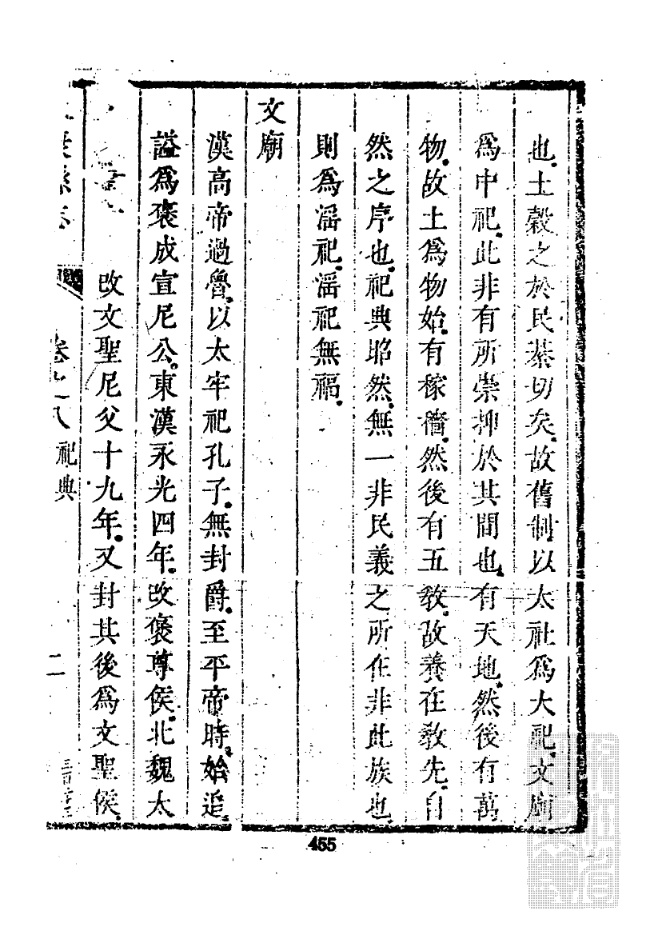 也土穀之於民綦切矣故舊制以太社爲大祀文廟
爲中祀此非有所崇抑於其間也有天地然後有萬
物故土爲物始有稼穡然後有五教故養在教先自
然之序也祀典昭然無一非民義之所在非此族也
則爲淫祀淫祀無福
文廟
漢高帝過魯以太牢祀孔子無封爵至平帝時始追
諡爲褒成宣尼公東漢永光四年改褒尊侯北魏太
改文聖尼父十九年又封其後爲文聖侯
卷之八 祀典
二
455